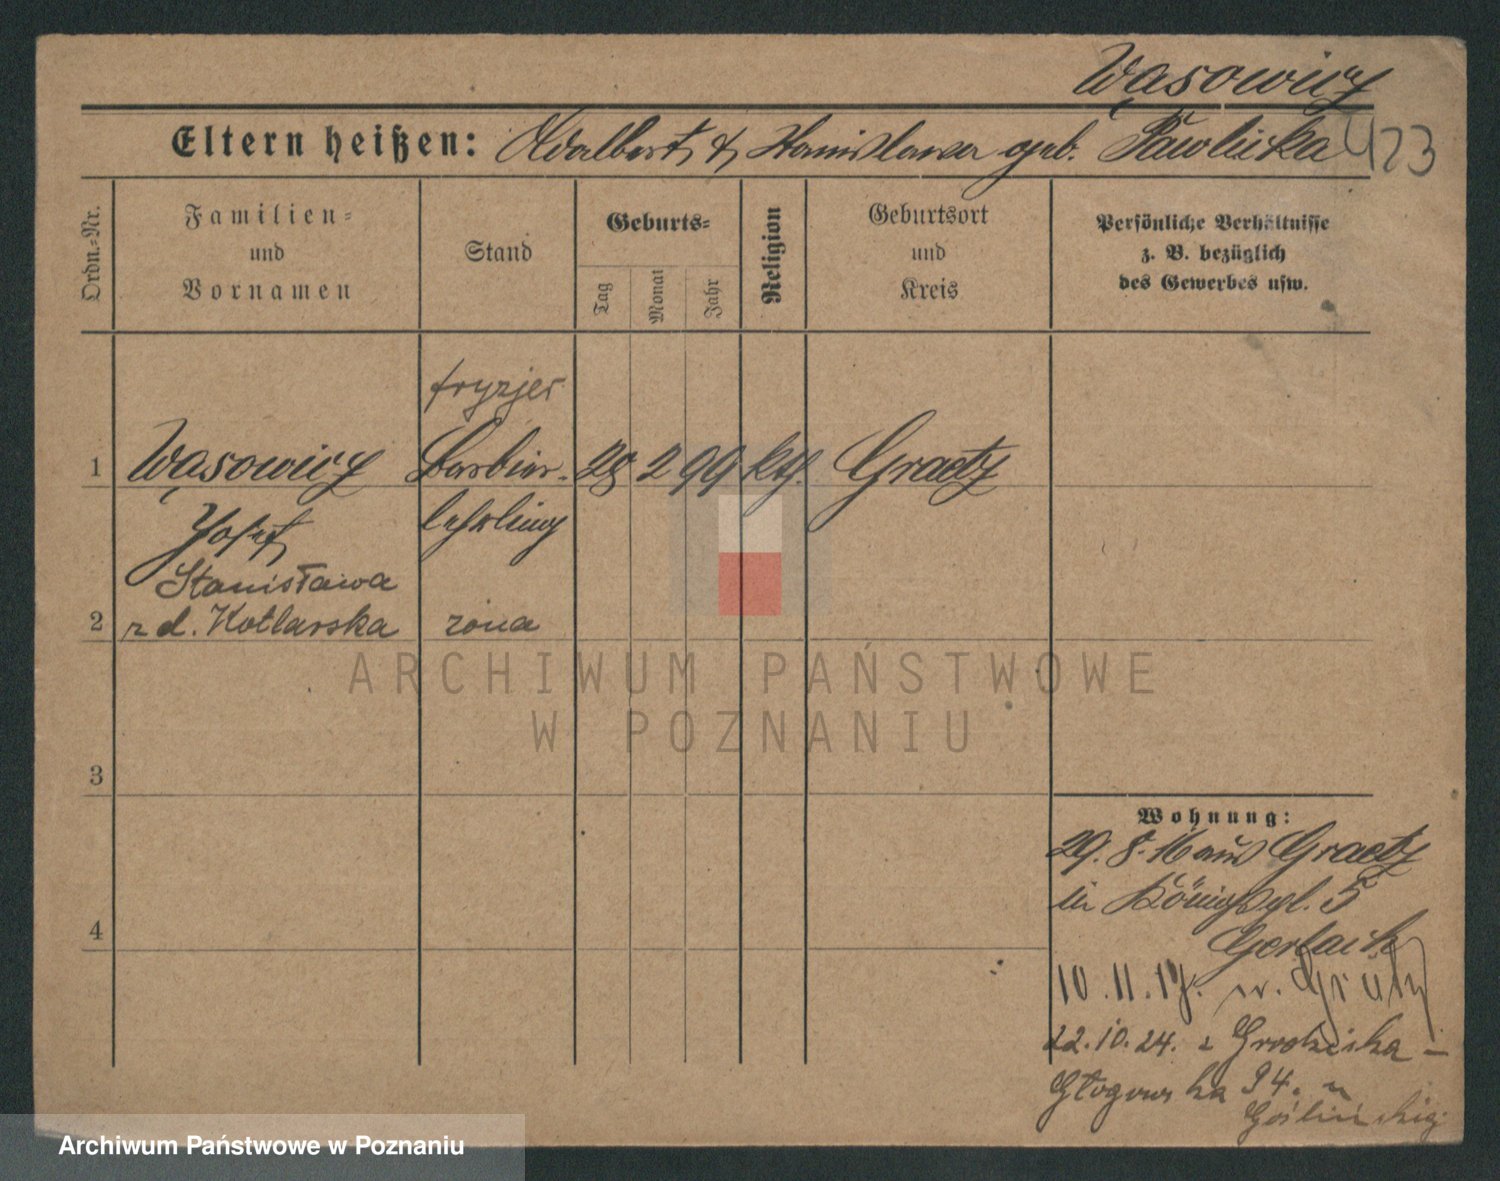 Wąsowicz
Eltern heißen: Adalbert & Stanislawa geb. Pawlicka
423
Ordn.-Nr.
Familien-
und
Vornamen
Stand
Geburts-
Tag
Monat
Jahr
Religion
Geburtsort
und
Kreis
Persönliche Verhältnisse
z. B. bezüglich
des Gewerbes usw.
fryzjer
1 Wąsowicz Barbier- 28 2 99 kth. Graetz
Josef lehrling
Stanisława
2 z d. Kotlarska żona
3
Wohnung:
29. 8. 16 aus Graetz
in Königspl. 5
4
Gerlach
10. 11. 17. n. Grätz
22.10.24. z Grodziska –
Głogowska 94. u
ARCHIWUM PAŃSTWOWE
W POZNANIU
Archiwum Państwowe w Poznaniu